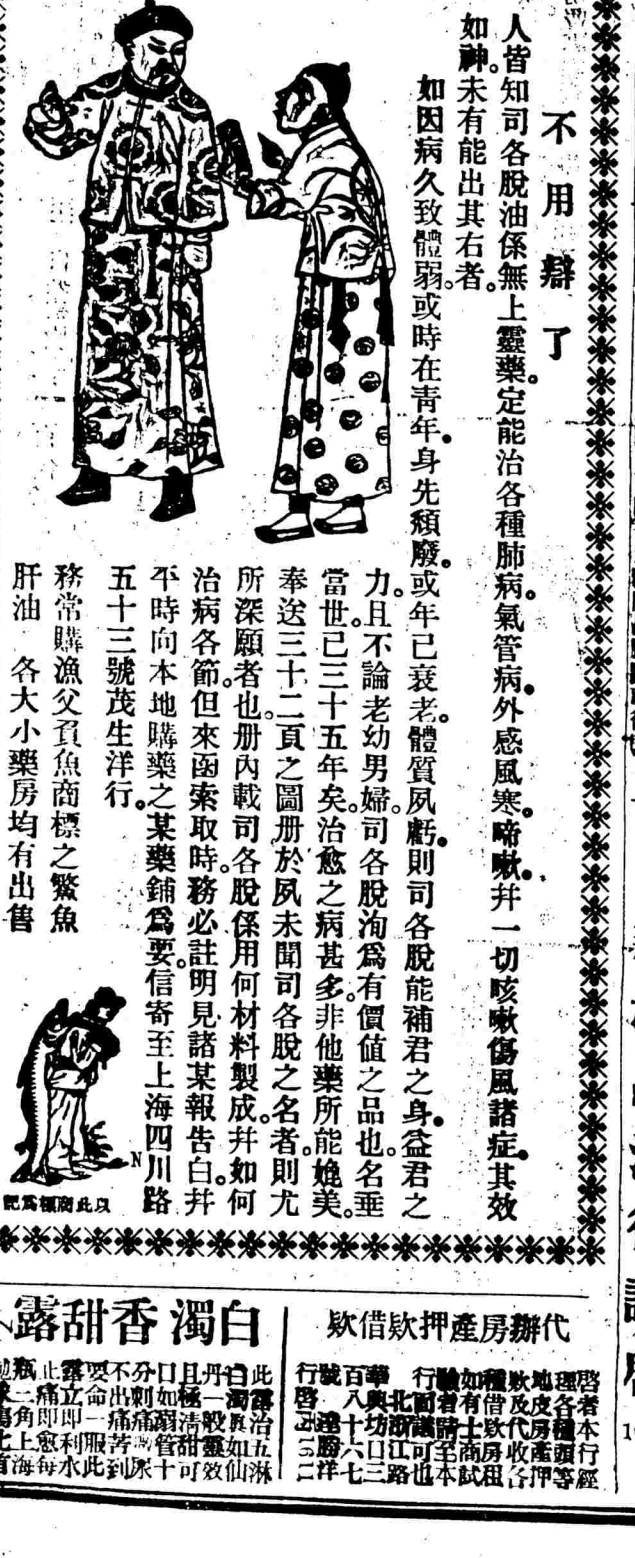 不用辯了
人皆知司各脫油係無上靈藥。定能治各種肺病。氣管病。外感風寒。嗁嗽。幷一切咳嗽傷風諸症。其效
如神。未有能出其右者。
如因病久致體弱。或時在靑年。身先頹廢。或年已衰老。體質夙虧。則司各脫能補君之身。益君之
力。且不論老幼男婦。司各脫洵爲有價値之品也。名垂
當世。已三十五年矣。治愈之病甚多。非他藥所能媲美。
奉送三十二頁之圖册於夙未聞司各脫之名者。則尤
所深願者也。册內載司各脫係用何材料製成。幷如何
治病各節。但來函索取時。務必註明見諸某報告白。幷
平時向本地購藥之某藥鋪爲要。信寄至上海四川路
五十三號茂生洋行。
務常購漁父負魚商標之鰵魚
肝油 各大小藥房均有出售
N
以此商標爲記
代辦房產押欵借欵
啓者本行經
理各種頭等
地皮房產押
欵及代收各
種借欵房租
如有士商試
驗者請至本
行面議可也
北浙江路
華興坊口三
百八十六七
號 達勝洋
行啓
白濁香甜露
此露治五淋
白濁眞如仙
丹一般靈效
且極淸甜可
口如溺管十
分刺痛尿
不出痛苦到
要命一服此
露立卽利水
止痛卽愈每
瓶二角上海